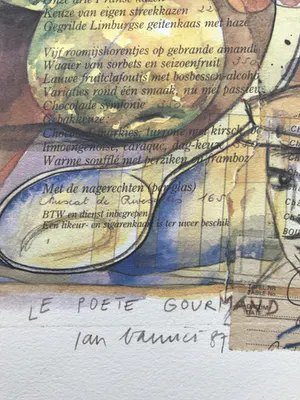 Keuze van eigen streekkazen
Gegrilde Limburgse geitenkaas met haze
Vijf roomijshorentjes op gebrande amandl
Waaier van sorbets en seizoenfruit 350
Lauwe fruitclafoutis met bosbessen-alcoho
Variatus rond één smaak, nu met passievr
Chocolade symfonie 350
Gebakkeuze:
met kirsch,
dag-keuze
Warme soufflé met perziken en framboz
Met de nagerechten (per glas)
Muscat de Rivesaltes 165
BTW en dienst inbegrepen
Een likeur- en sigarenkaart is ter uwer beschik
LE POETE GOURMAND
Jan 87